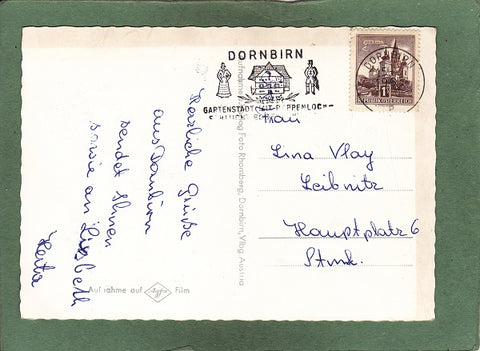 DORNBIRN
GARTENSTADT MIT RAPPENLOCH-
DORNBIRN
1
REPUBLIK ÖSTERREICH
Frau
Lina Vlay
Leibnitz
Hauptplatz 6
Stmk.
Herzliche Grüße
aus Dornbirn
sendet Ihnen
sowie an Lisbeth
Herta
Verlag Foto Rhomberg, Dornbirn, Vlbg. Austria
Aufnahme auf Agfa Film